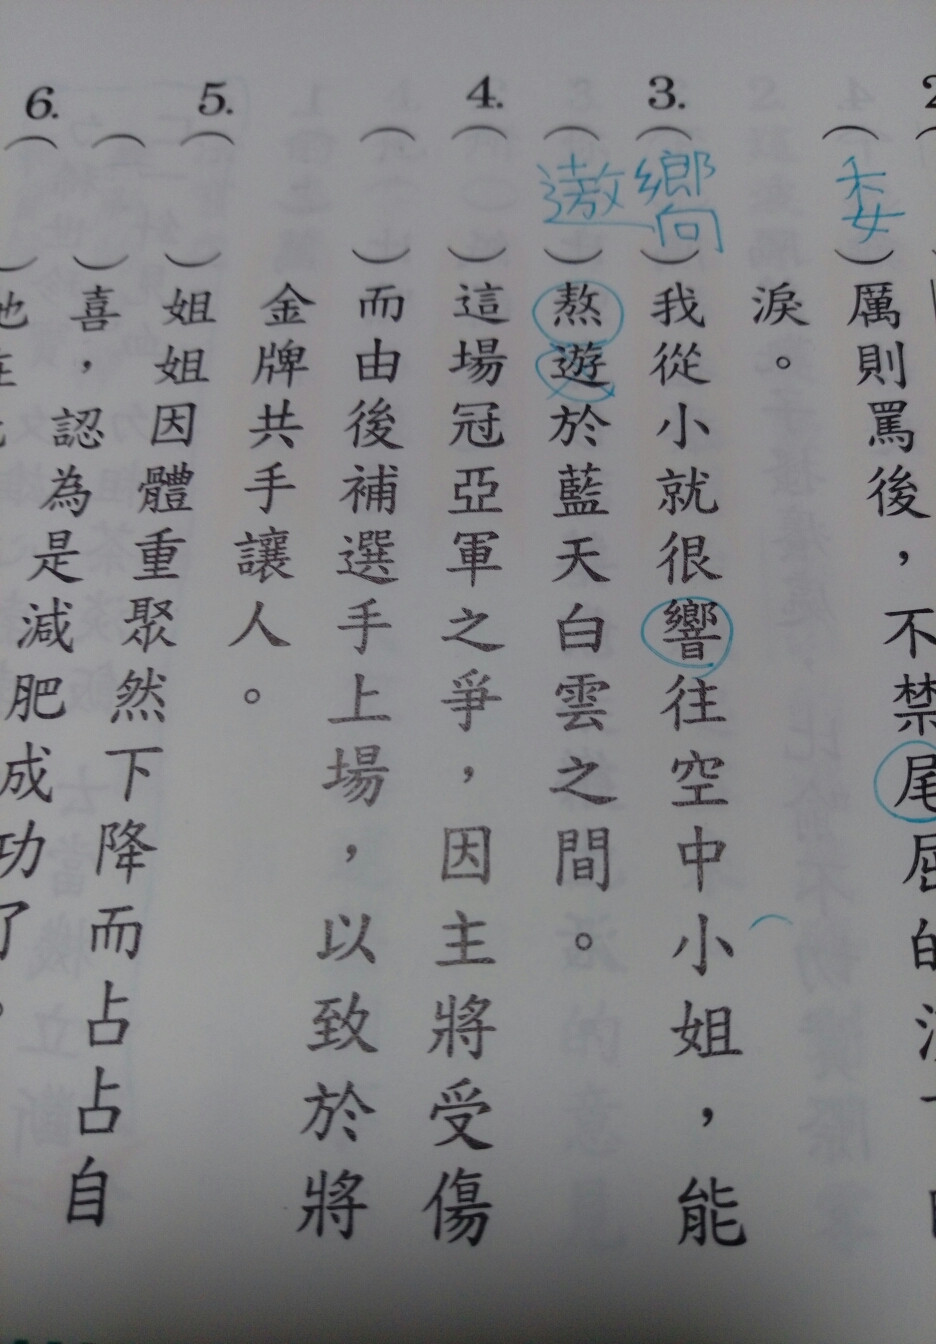 2
(委)厲則罵後，不禁尾屈的
淚。
3.(嚮)我從小就很響往空中小姐，能
(遨)熬遊於藍天白雲之間。
4.( )這場冠亞軍之爭，因主將受傷
( )而由後補選手上場，以致於將
金牌共手讓人。
5.( )姐姐因體重聚然下降而占占自
( )喜，認為是減肥成功了。
6.( )